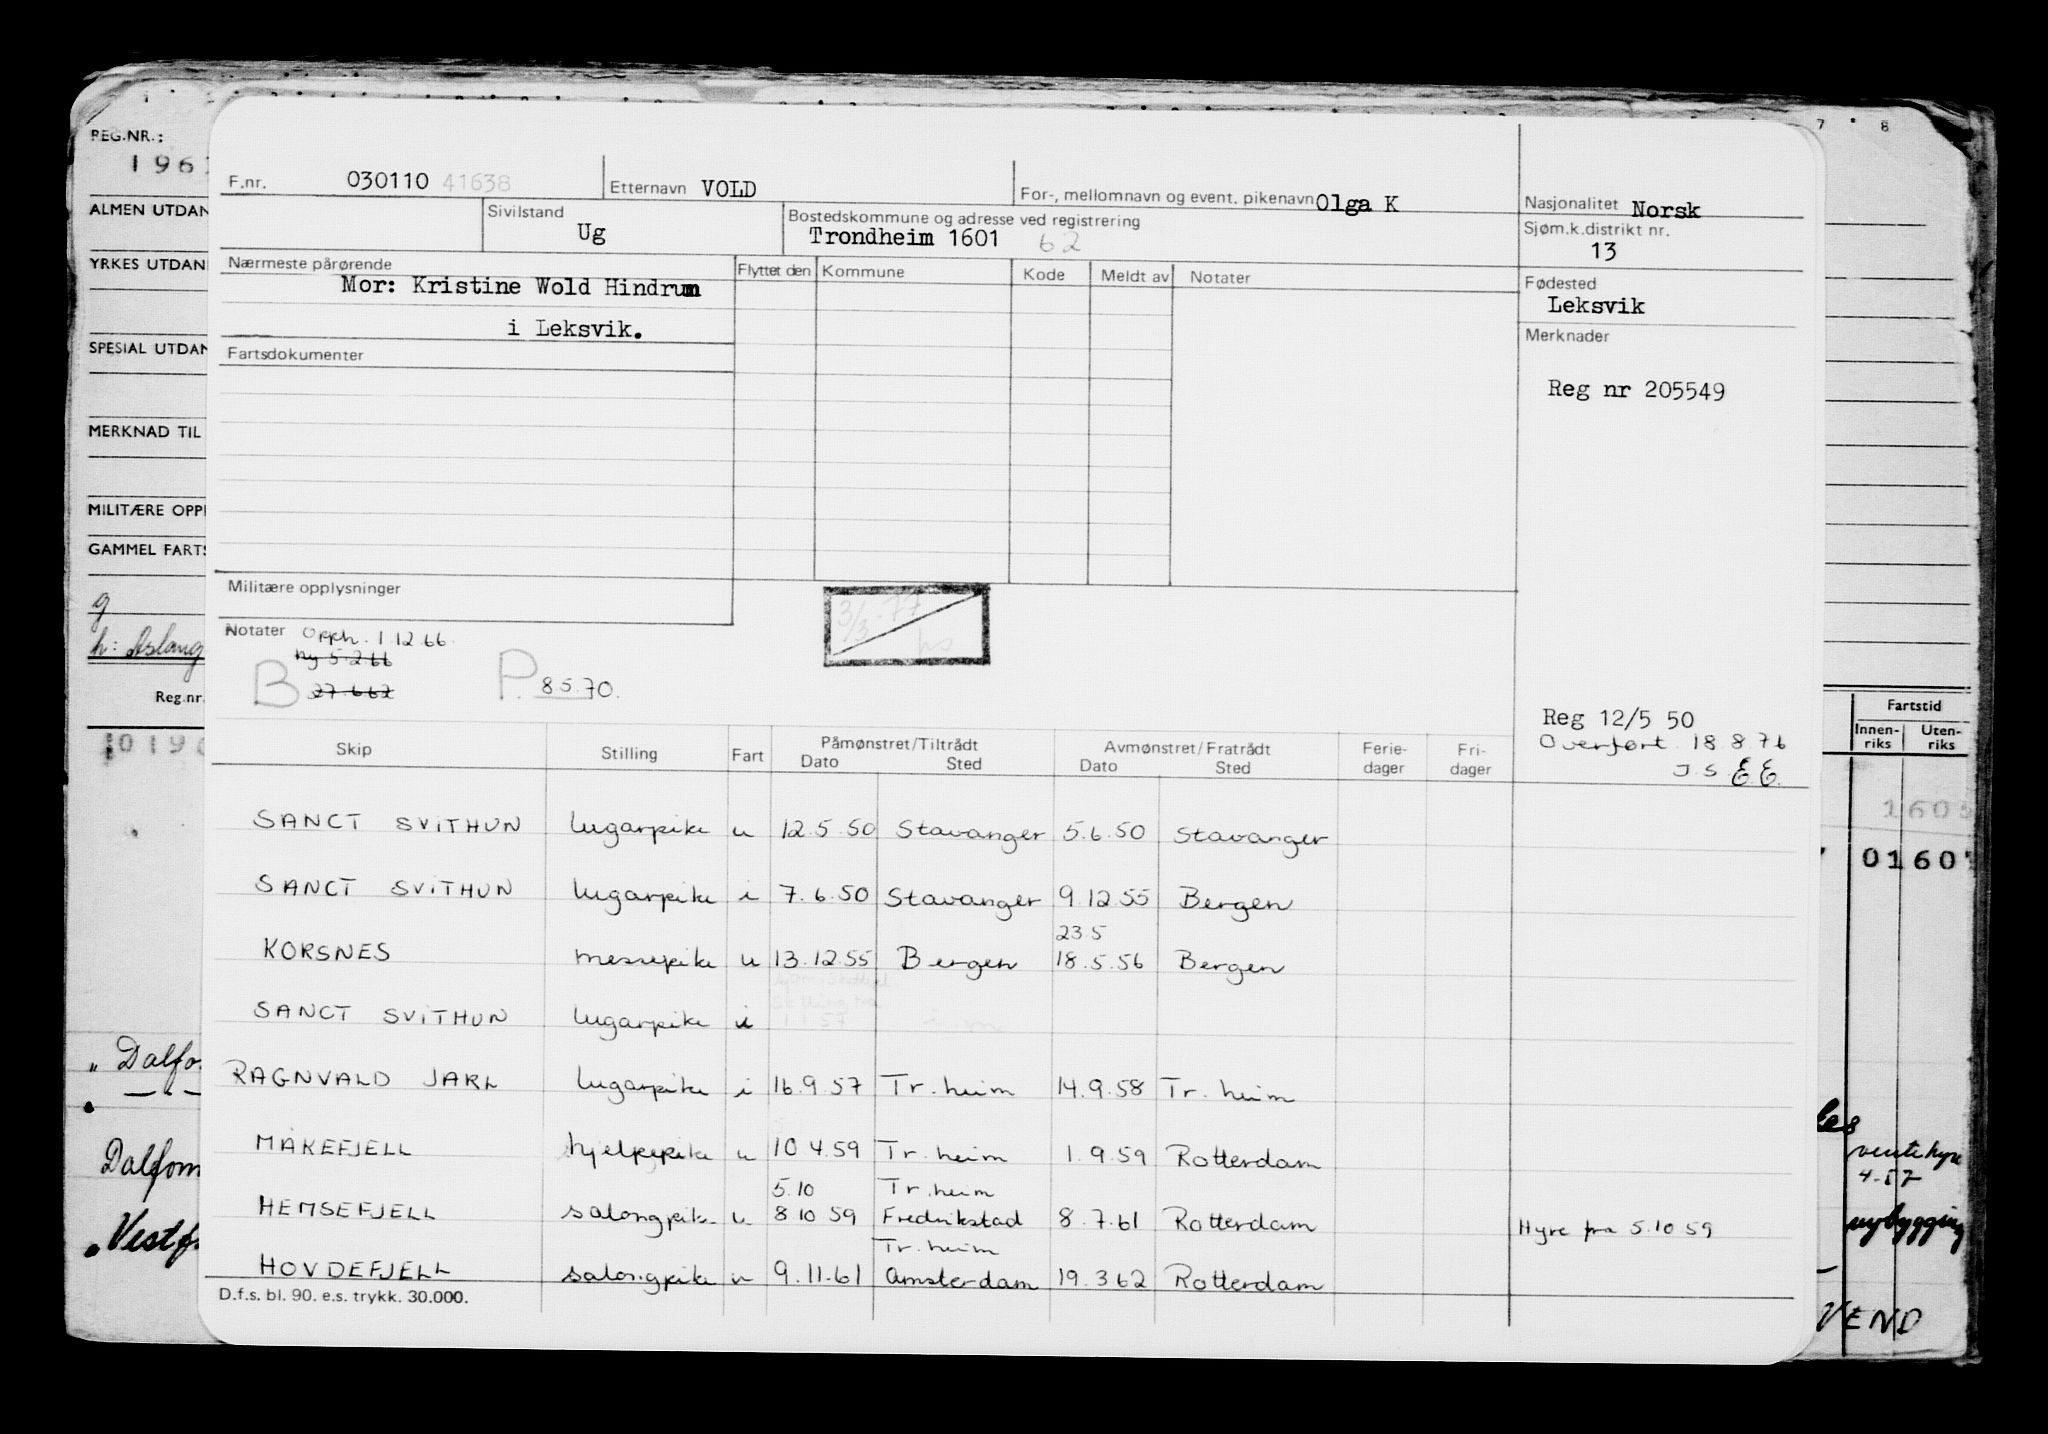 REG.NR.:
ALMEN UTDAN
YRKES UTDAN
SPESIAL UTDAN
MERKNAD TIL
MILITÆRE OPPL
GAMMEL FARTS
g
h: Aslaug
Reg.nr.
"Dalfo
Dalfonn
"Vestf
7 8
F.nr. 030110 41638 Etternavn VOLD For-, mellomnavn og event. pikenavn Olga K Nasjonalitet Norsk
Sivilstand Ug Bostedskommune og adresse ved registrering Trondheim 1601 62 Sjøm.k.distrikt nr. 13
Nærmeste pårørende Flyttet den Kommune Kode Meldt av Notater Fødested
Mor: Kristine Wold Hindrum Leksvik
i Leksvik. Merknader
Fartsdokumenter
Reg nr 205549
Militære opplysninger
3/3-77
Notater Opph. 1.12.66.
ny 5.2.66
B 27.6.62 P. 8.5.70.
Reg 12/5 50
Overført 18.8.76
J.S. E.E.
Skip Stilling Fart Påmønstret/Tiltrådt Avmønstret/Fratrådt Ferie-dager Fri-dager
Dato Sted Dato Sted
SANCT SVITHUN lugarpike u 12.5.50 Stavanger 5.6.50 Stavanger
SANCT SVITHUN lugarpike i 7.6.50 Stavanger 9.12.55 Bergen
23.5
KORSNES messepike u 13.12.55 Bergen 18.5.56 Bergen
SANCT SVITHUN lugarpike i 1.1.57
RAGNVALD JARL lugarpike i 16.9.57 Tr.heim 14.9.58 Tr.heim
MÅKEFJELL hjelpepike u 10.4.59 Tr.heim 1.9.59 Rotterdam
5.10 Tr.heim
HEMSEFJELL salongpike u 8.10.59 Fredrikstad 8.7.61 Rotterdam Hyre fra 5.10.59
Tr.heim
HOVDEFJELL salongpike u 9.11.61 Amsterdam 19.3.62 Rotterdam
D.f.s. bl. 90. e.s. trykk. 30.000.
Fartstid
Innen-riks Uten-riks
ventehyre
4-57
nybygging
VEND